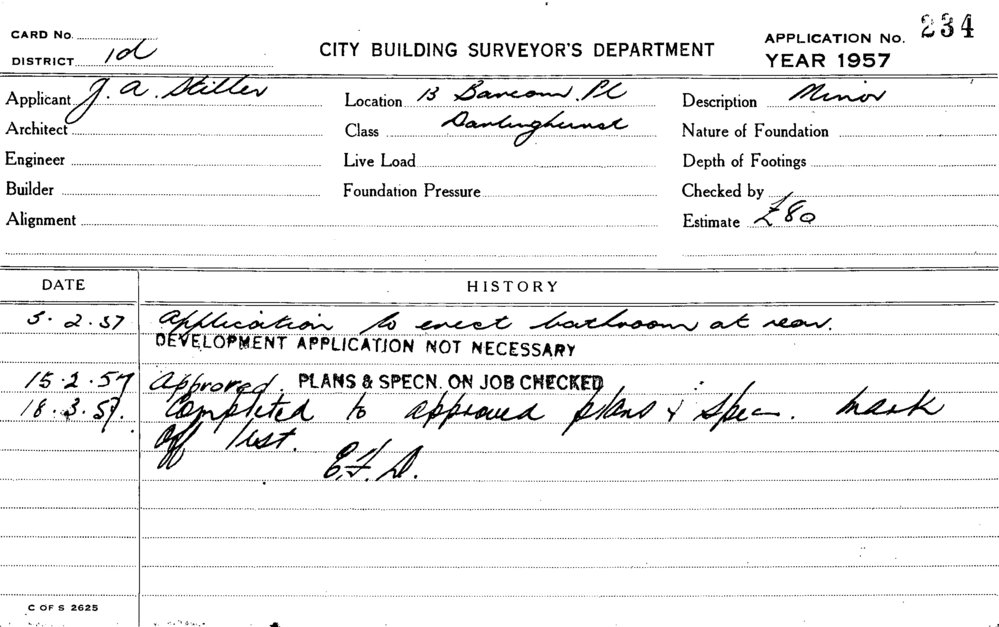 CARD No. CITY BUILDING SURVEYOR'S DEPARTMENT APPLICATION No. 234
DISTRICT 1d YEAR 1957
Applicant J. A. Stiller Location 13 Barcom. Pl Description Minor
Architect Class Darlinghurst Nature of Foundation
Engineer Live Load Depth of Footings
Builder Foundation Pressure Checked by
Alignment Estimate £80
DATE HISTORY
5.2.57 Application to erect bathroom at rear.
DEVELOPMENT APPLICATION NOT NECESSARY
15.2.57 Approved. PLANS & SPECN. ON JOB CHECKED
18.3.57. Completed to approved plans & spec. Mark
off list.
E.F.D.
C OF S 2625